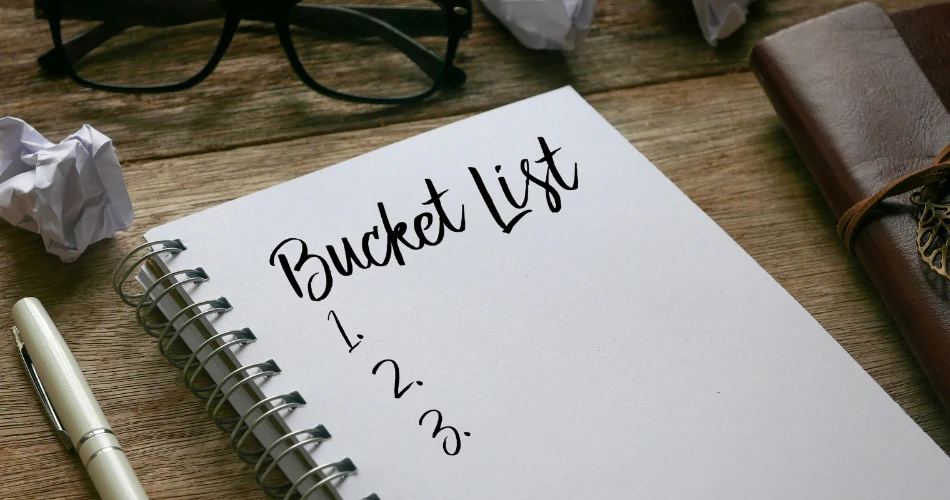 Bucket List
1.
2.
3.